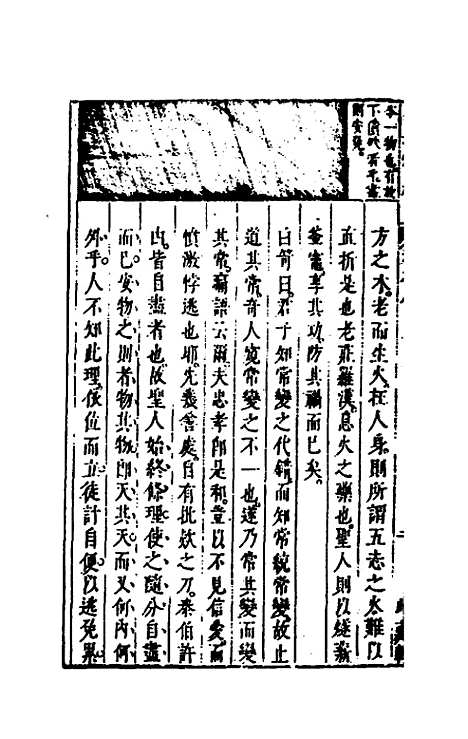 本一物也有故
下
則安矣
方之木老而生火在人身則所謂五志之火難以
直折是也老莊羅漢息火之藥也聖人則以
享其功防其禍而已矣
曰箭曰君子知常變之代錯而知常統常變故止
道其常奇人窺常變之不一也遂乃常其變而變
其常寓語云爾夫忠孝即是和豈以不見信愛而
憤激悖逃也耶先
處自有批欵之刀泰伯許
由皆自盡者也故聖人始終
理使之隨分自盡
而已安物之則者物其物即天其天而又何內何
外乎人不知此理依位而立徒計自便以逃免累